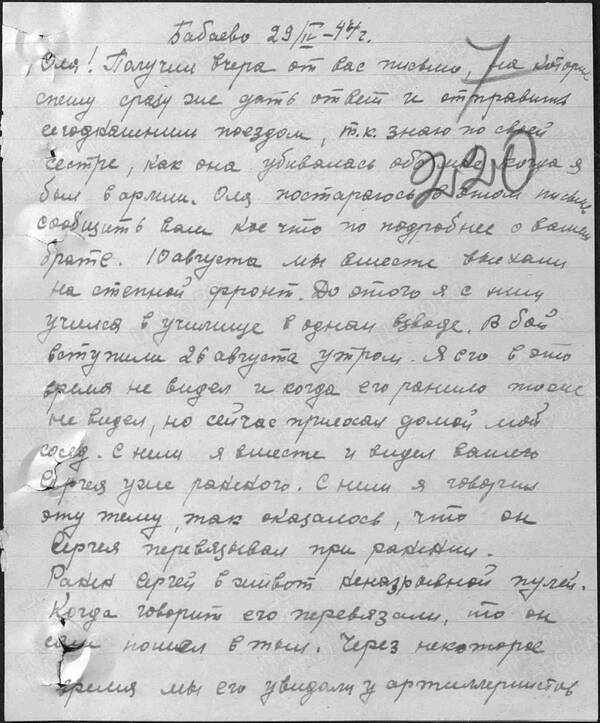 Бабаево 29/IV-44 г.
Оля! Получил вчера от вас письмо, на которое
спешу сразу же дать ответ и отправить
сегодняшним поездом, т.к. знаю по своей
сестре, как она убивалась обо мне когда я
был в армии. Оля постараюсь в этом письме
сообщить вам кое что по подробнее о вашем
брате. 10 августа мы вместе выехали
на степной фронт. До этого я с ним
учился в училище в одном взводе. В бой
вступили 26 августа утром. Я его в это
время не видел и когда его ранило тоже
не видел, но сейчас приехал домой мой
сосед. С ним я вместе и видел вашего
Сергея уже раненого. С ним я говорил
эту тему, так оказалось, что он
Сергея перевязывал при ранении.
Ранен Сергей в живот неразрывной пулей.
Когда говорит его перевязали, то он
сам пошел в тыл. Через некоторое
время мы его увидали у артиллеристов
7
220